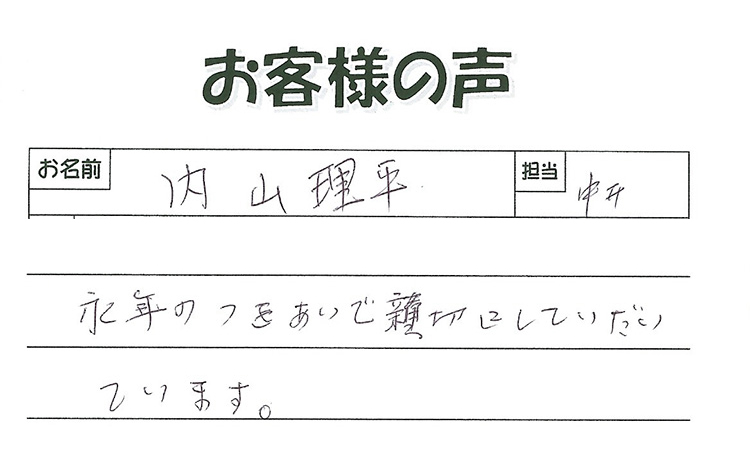 お客様の声
お名前 内山理平 担当 中井
永年のつきあいで親切にしていただい
ています。